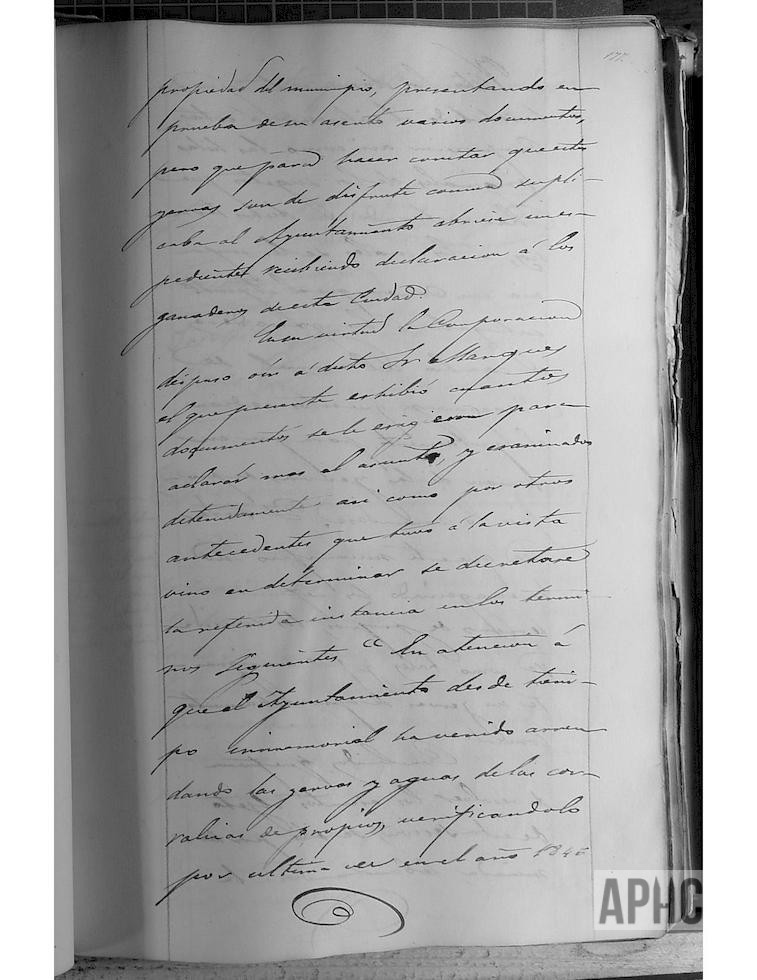 177.
propiedad del municipio, presentando en
prueba de su aserto varios documentos,
pero que para hacer constar que estas
yervas son de disfrute comun supli-
caba al Ayuntamiento abriese un es-
pediente recibiendo declaracion á los
ganaderos de esta Ciudad.
En su virtud la Corporacion
dispuso oir á dicho Sr. Marques
el que presente exhibió cuantos
documentos se le exigieron para
aclarar mas el asunto, y examinados
detenidamente asi como por otros
antecedentes que tuvo á la vista
vino en determinar se decretase
la referida instancia en los termi-
nos siguientes "En atencion á
que el Ayuntamiento desde tiem-
po inmemorial ha venido arren
dando las yervas y aguas de las cor-
ralizas de propios, verificandolo
por ultima vez en el año 184
APHC